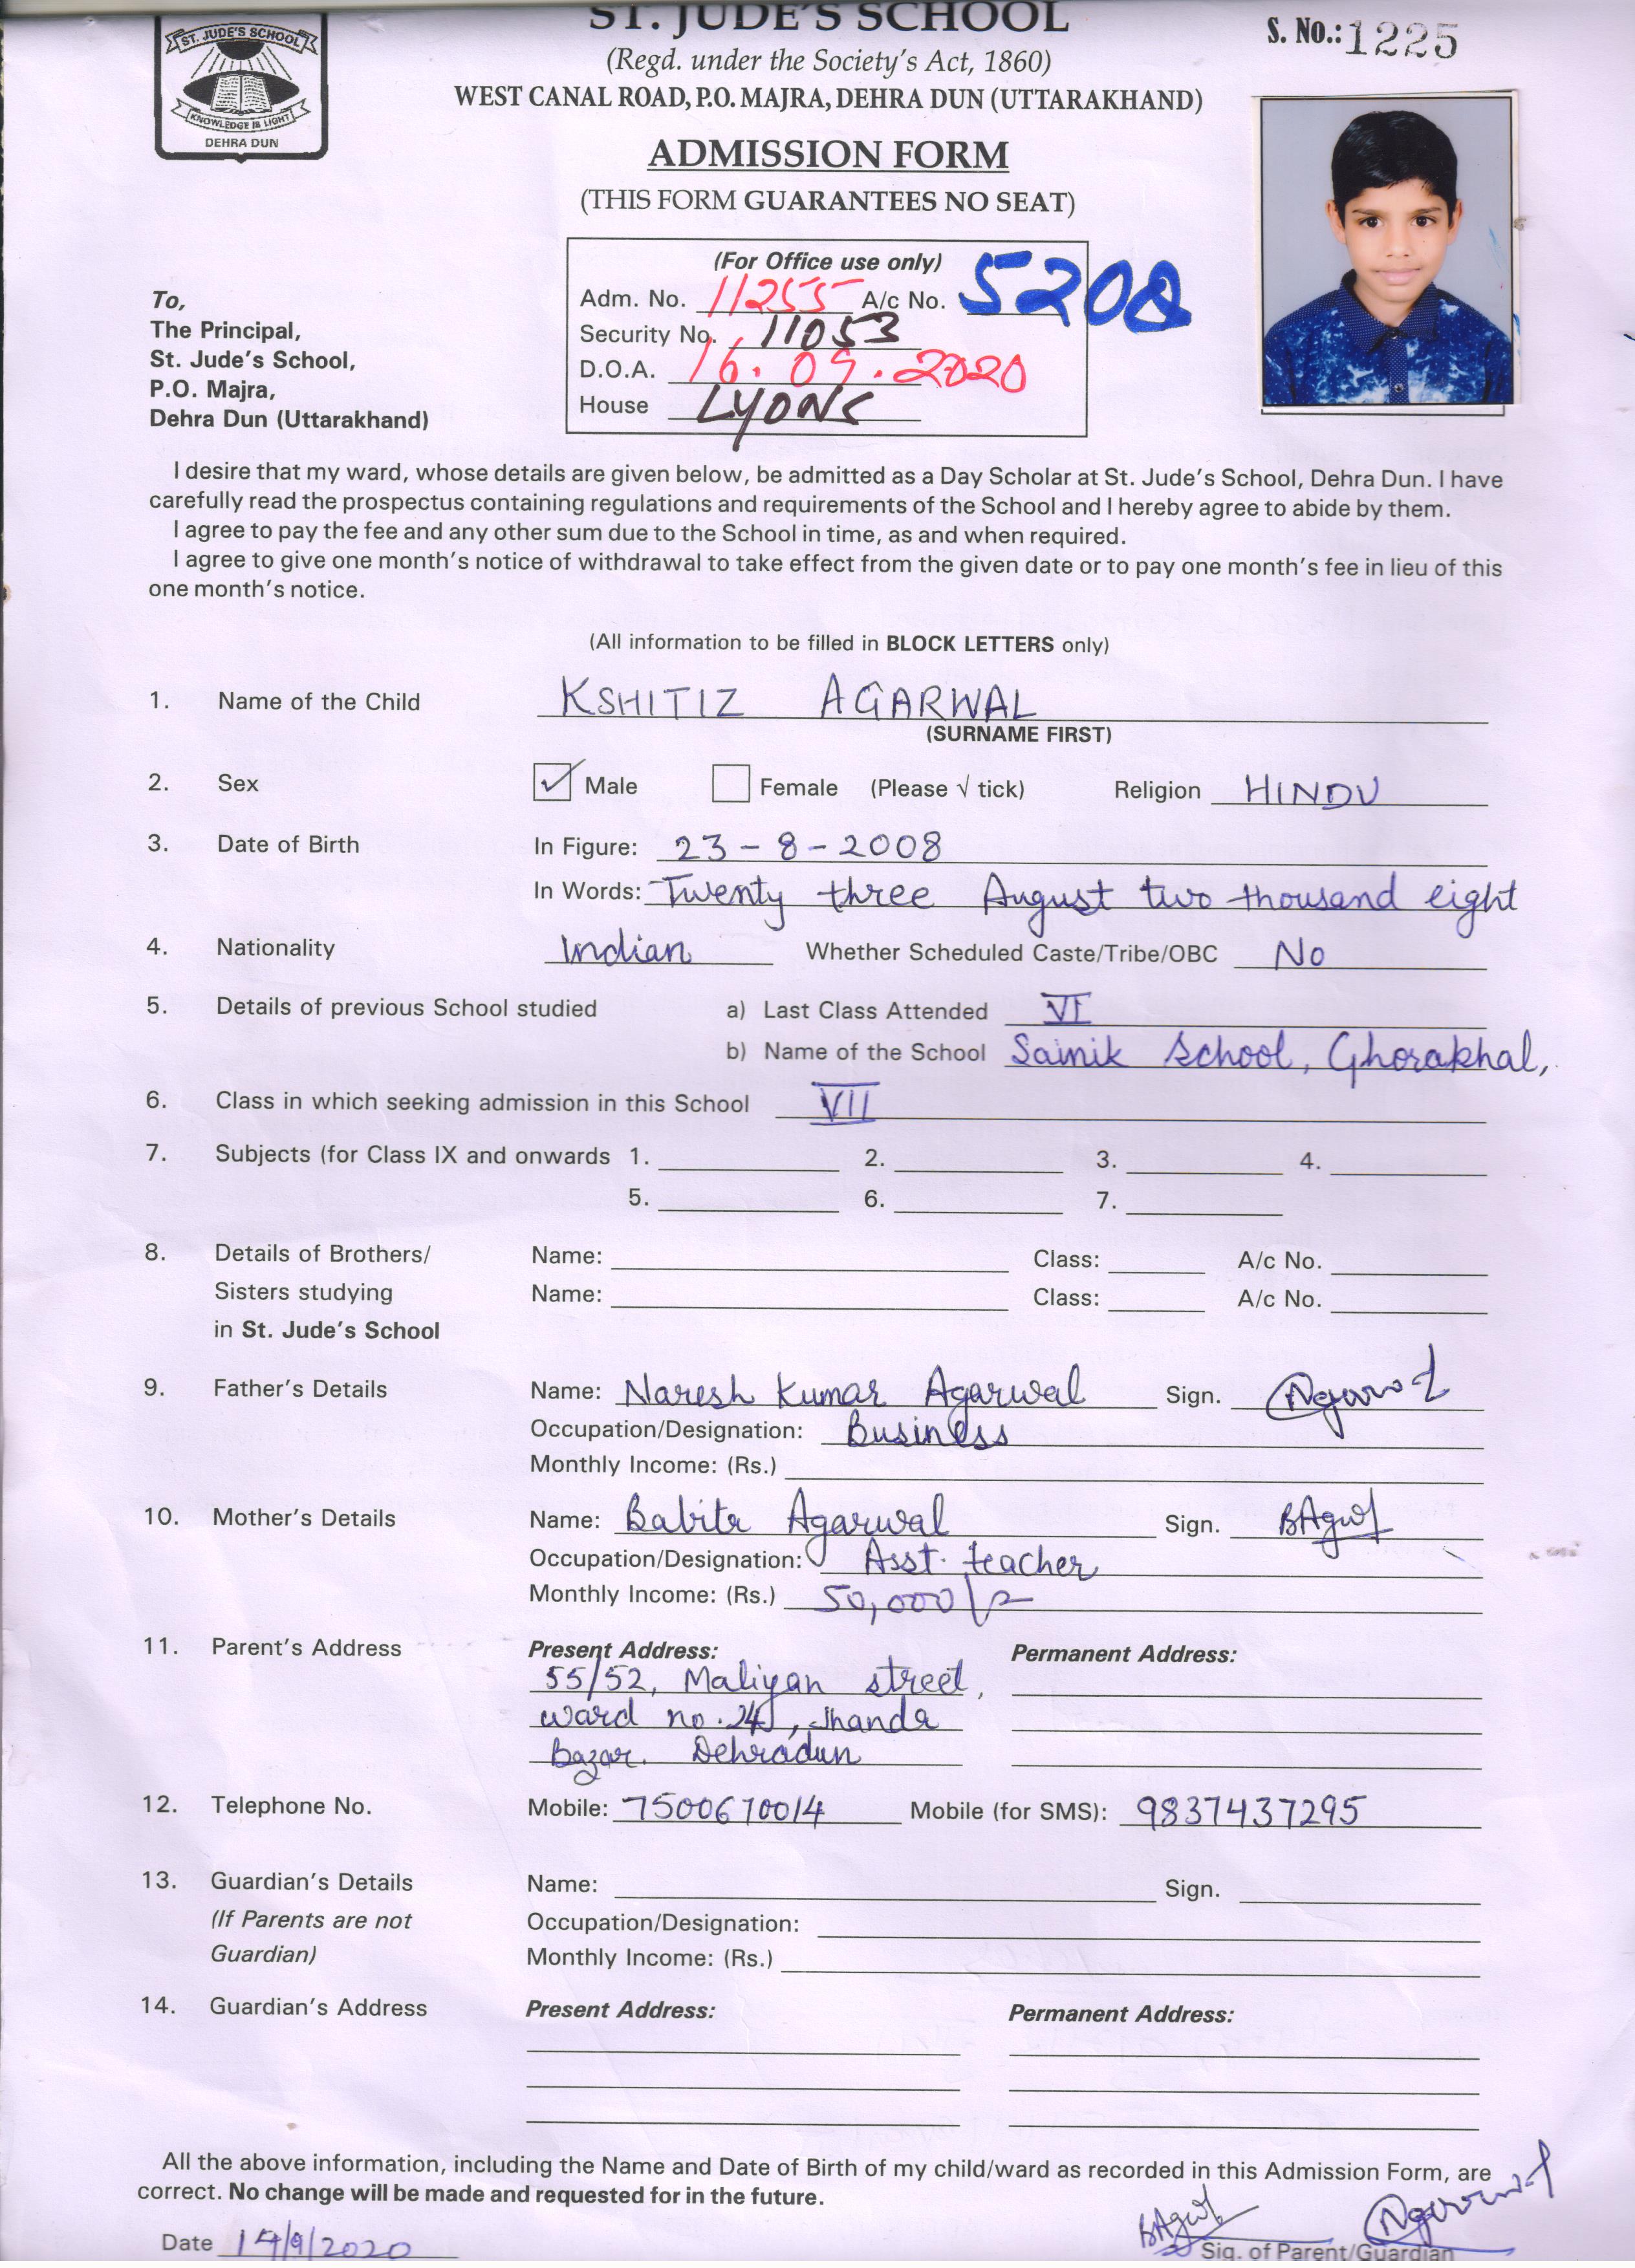 ST. JUDE'S SCHOOL
KNOWLEDGE IS LIGHT
DEHRA DUN
ST. JUDE'S SCHOOL
(Regd. under the Society's Act, 1860)
WEST CANAL ROAD, P.O. MAJRA, DEHRA DUN (UTTARAKHAND)
S. No.: 1225
ADMISSION FORM
(THIS FORM GUARANTEES NO SEAT)
(For Office use only)
Adm. No. 11255 A/c No. 5208
Security No. 11053
D.O.A. 16.09.2020
House LYONS
To,
The Principal,
St. Jude's School,
P.O. Majra,
Dehra Dun (Uttarakhand)
I desire that my ward, whose details are given below, be admitted as a Day Scholar at St. Jude's School, Dehra Dun. I have
carefully read the prospectus containing regulations and requirements of the School and I hereby agree to abide by them.
I agree to pay the fee and any other sum due to the School in time, as and when required.
I agree to give one month's notice of withdrawal to take effect from the given date or to pay one month's fee in lieu of this
one month's notice.
(All information to be filled in BLOCK LETTERS only)
1. Name of the Child KSHITIZ AGARWAL
(SURNAME FIRST)
2. Sex ✓ Male Female (Please √ tick) Religion HINDU
3. Date of Birth In Figure: 23-8-2008
In Words: Twenty three August two thousand eight
4. Nationality Indian Whether Scheduled Caste/Tribe/OBC No
5. Details of previous School studied a) Last Class Attended VI
b) Name of the School Sainik School, Ghorakhal,
6. Class in which seeking admission in this School VII
7. Subjects (for Class IX and onwards 1. 2. 3. 4.
5. 6. 7.
8. Details of Brothers/ Name: Class: A/c No.
Sisters studying Name: Class: A/c No.
in St. Jude's School
9. Father's Details Name: Naresh Kumar Agarwal Sign.
Occupation/Designation: Business
Monthly Income: (Rs.)
10. Mother's Details Name: Babita Agarwal Sign. BAgwl
Occupation/Designation: Asst. teacher
Monthly Income: (Rs.) 50,000/-
11. Parent's Address Present Address: Permanent Address:
55/52, Maliyan street,
ward no. 24, Jhanda
Bazar. Dehradun
12. Telephone No. Mobile: 7500670014 Mobile (for SMS): 9837437295
13. Guardian's Details Name: Sign.
(If Parents are not Occupation/Designation:
Guardian) Monthly Income: (Rs.)
14. Guardian's Address Present Address: Permanent Address:
All the above information, including the Name and Date of Birth of my child/ward as recorded in this Admission Form, are
correct. No change will be made and requested for in the future.
Date 14/9/2020
Sig. of Parent/Guardian